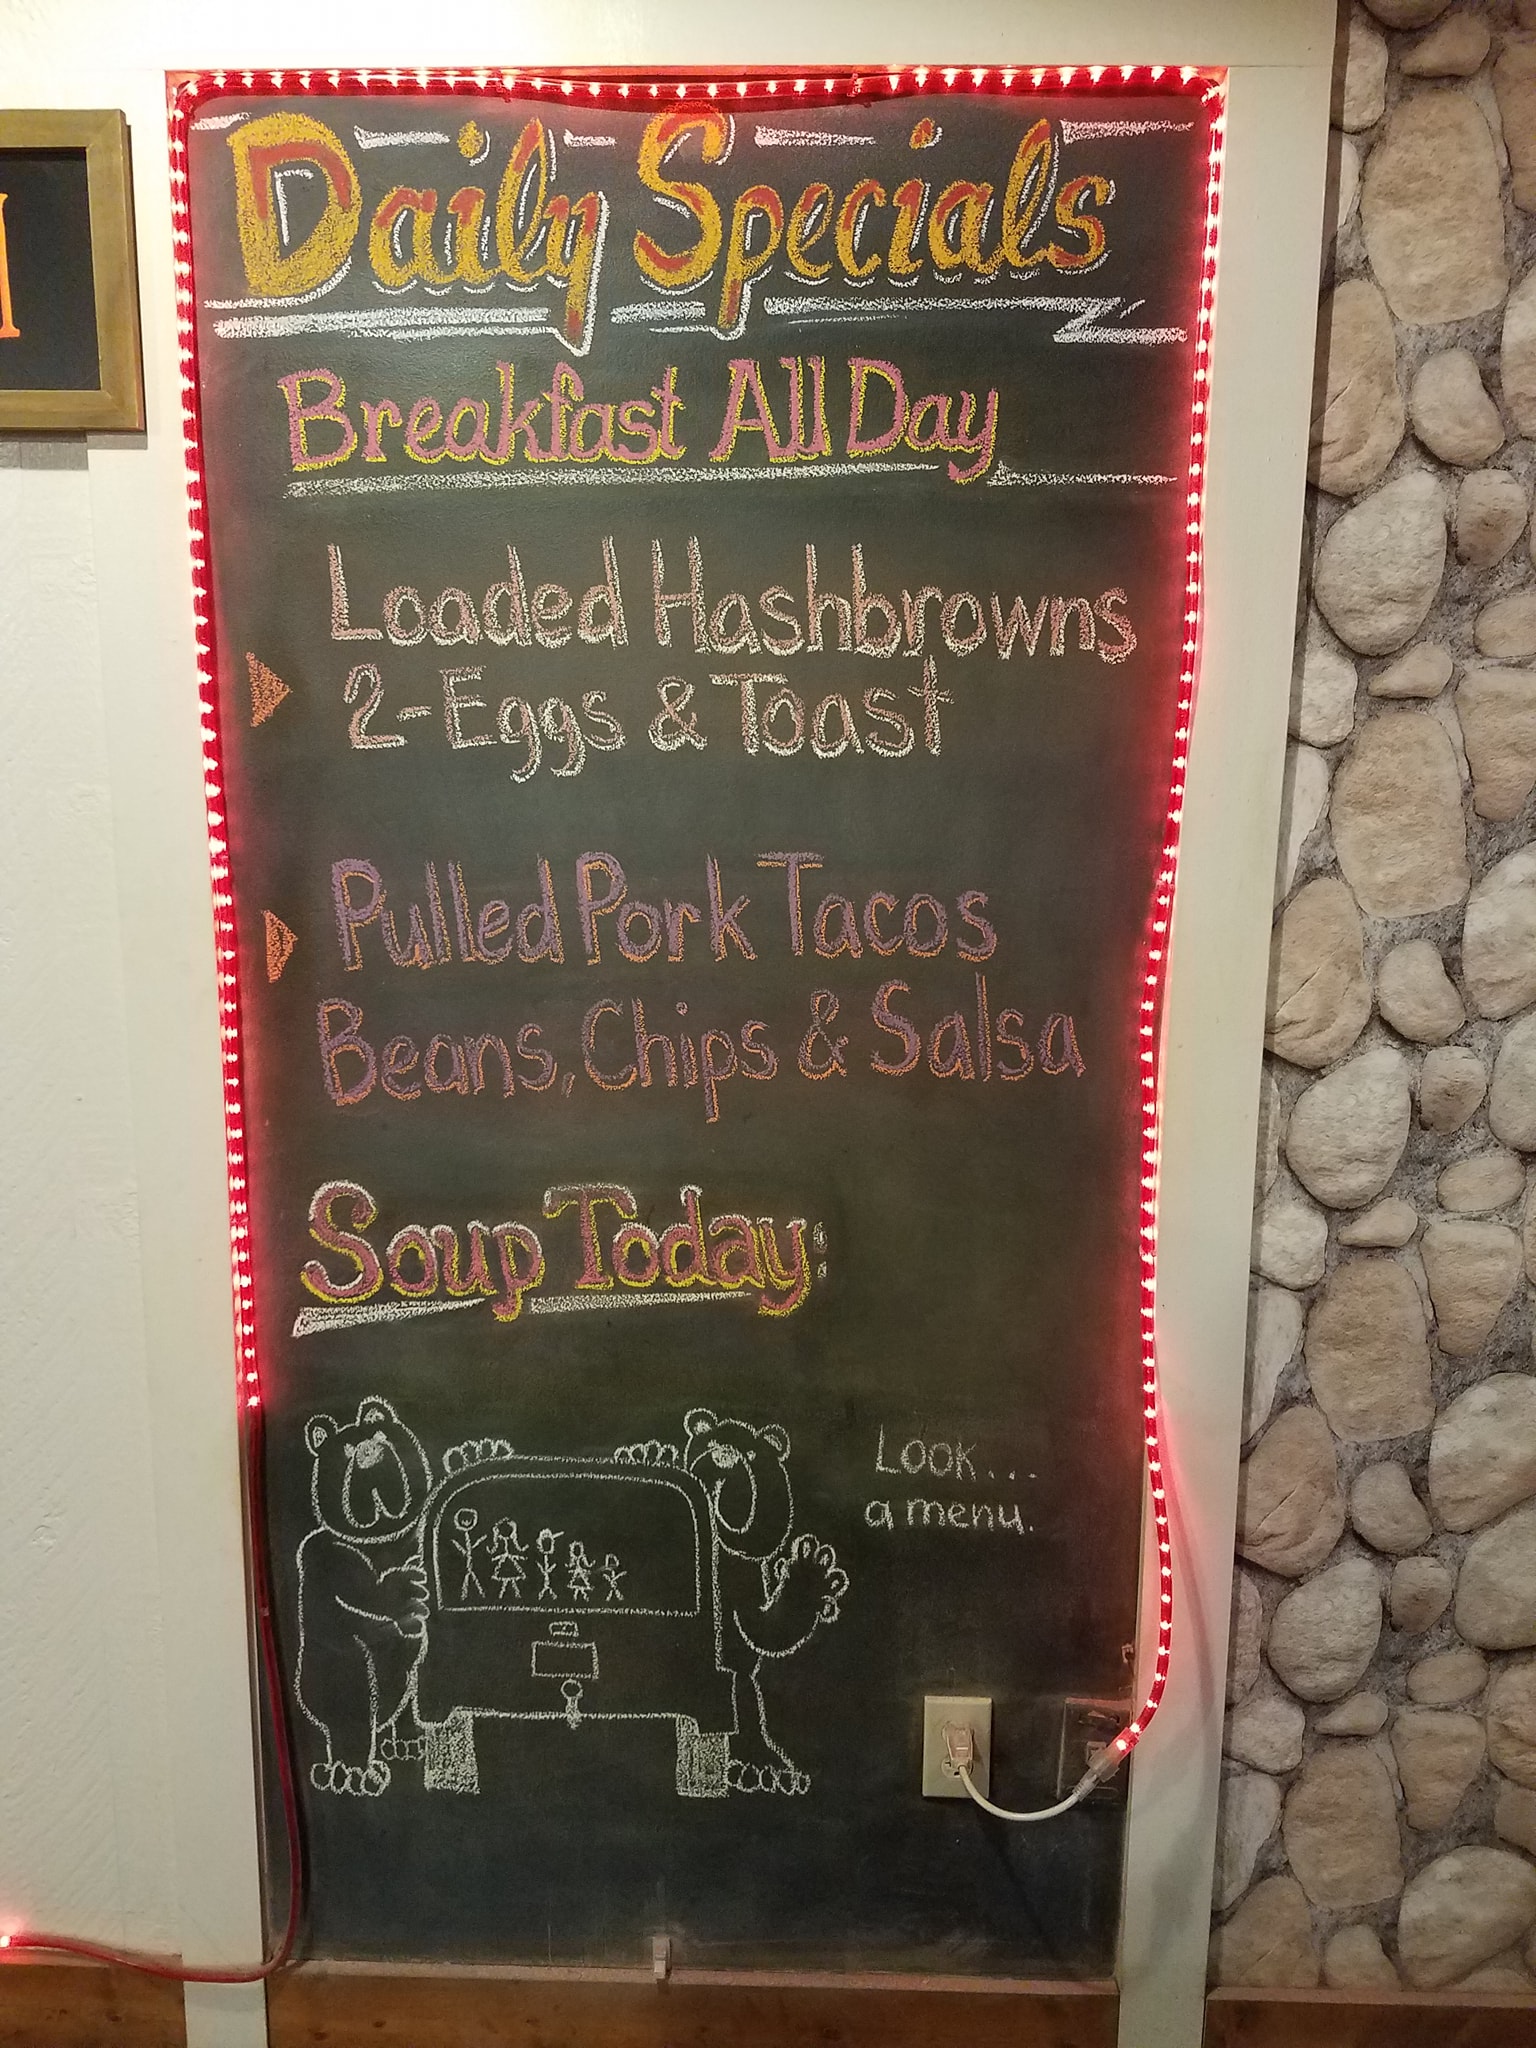 Daily Specials
Breakfast All Day
Loaded Hashbrowns
2-Eggs & Toast
Pulled Pork Tacos
Beans, Chips & Salsa
Soup Today:
Look...
a menu.